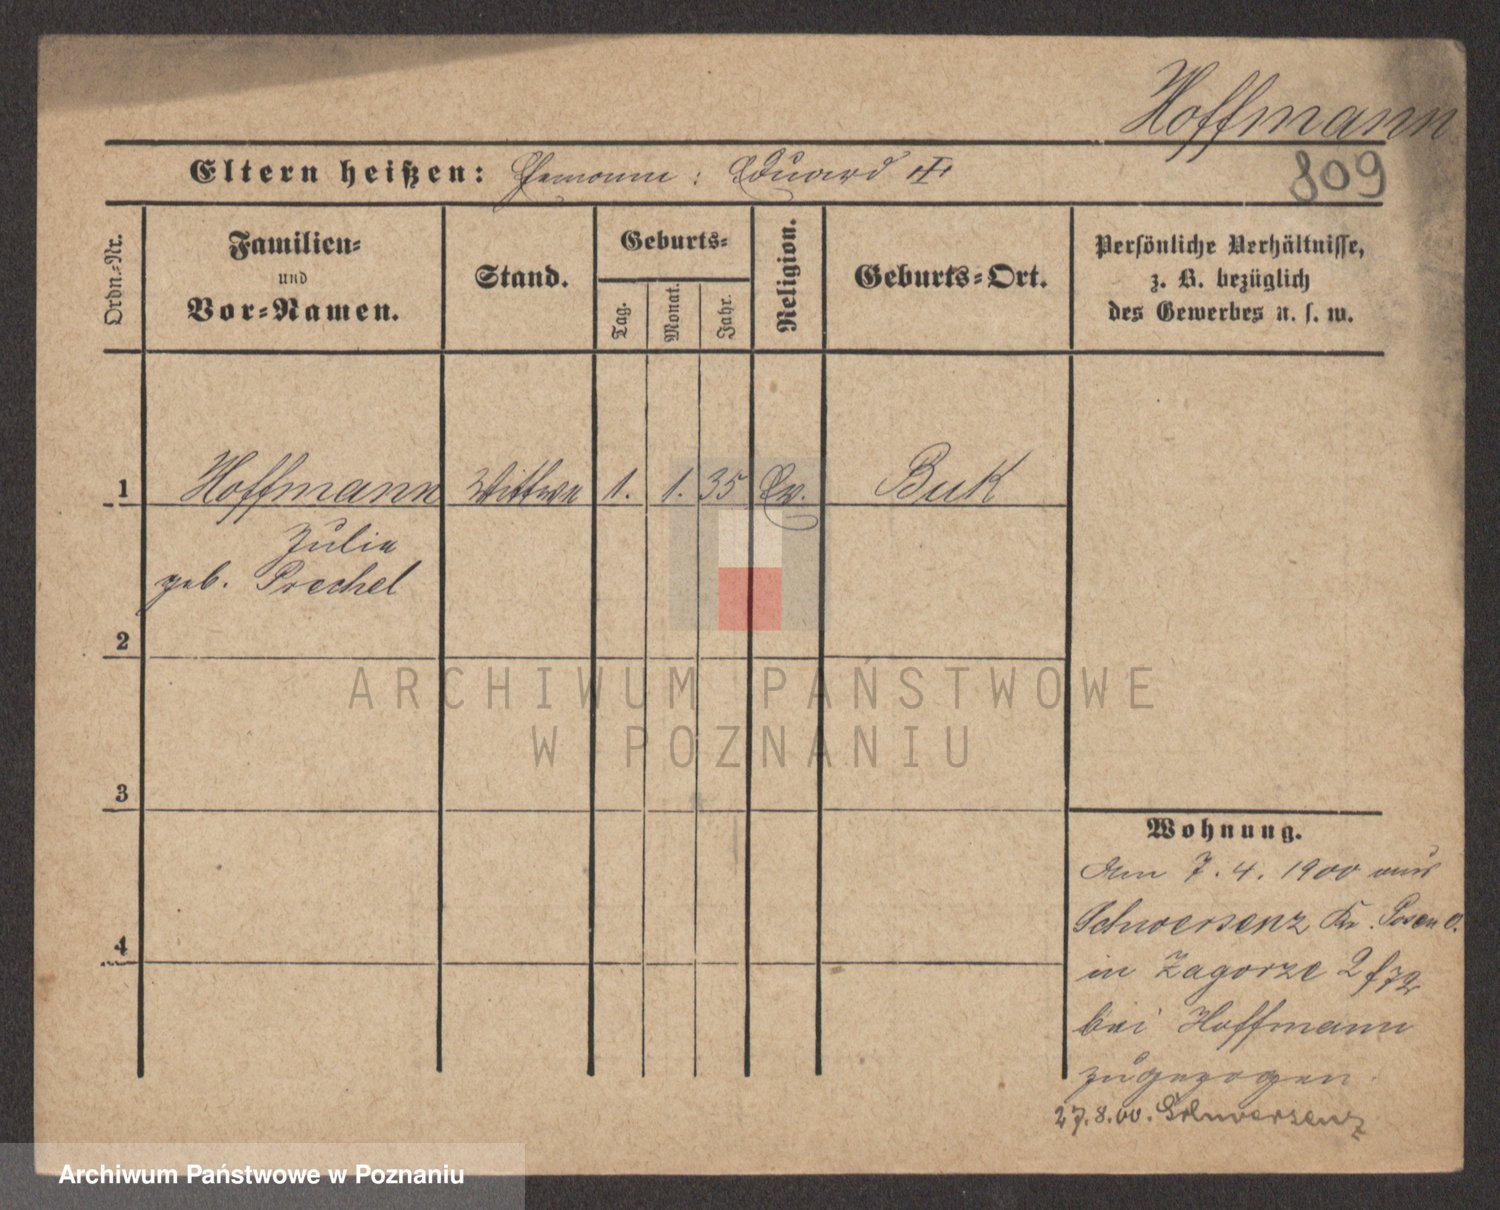 Hoffmann
809
Eltern heißen: Ehemann: Eduard
Ordn.-Nr.
Familien-
und
Vor-Namen.
Stand.
Geburts-
Tag.
Monat.
Jahr.
Religion.
Geburts-Ort.
Persönliche Verhältnisse,
z. B. bezüglich
des Gewerbes u. s. w.
1 Hoffmann Wittwe 1. 1. 35 Ev. Buk
Julie
geb. Prechel
2
ARCHIWUM PAŃSTWOWE
W POZNANIU
3
Wohnung.
Am 7.4.1900 aus
Schwersenz Kr. Posen O.
4
in Zagorze 2
bei Hoffmann
zugezogen.
27.8.00. Schwersenz
Archiwum Państwowe w Poznaniu